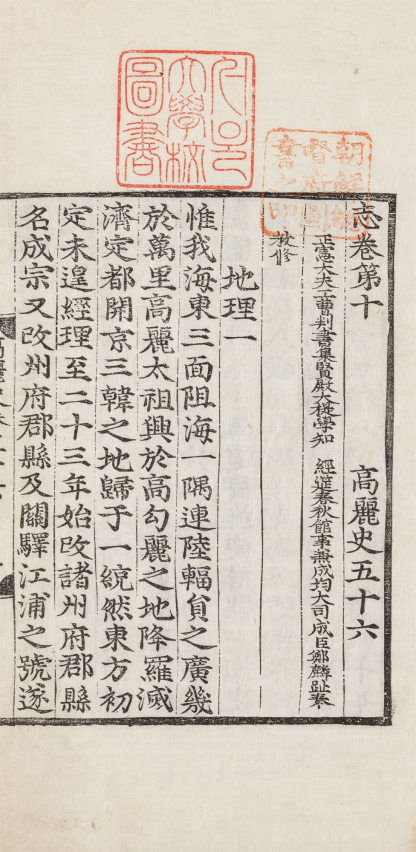 志卷第十 高麗史五十六
正憲大夫工曹判書集賢殿大提學知 經筵春秋館事兼成均大司成臣鄭麟趾奉
教修
地理一
惟我海東三面阻海一隅連陸輻員之廣幾
於萬里高麗太祖興於高勾麗之地降羅滅
濟定都開京三韓之地歸于一統然東方初
定未遑經理至二十三年始改諸州府郡縣
名成宗又改州府郡縣及關驛江浦之號遂
朝鮮總
督府圖
書之印
大學校
圖書